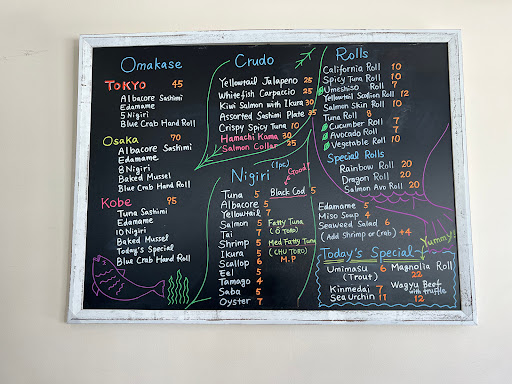 Omakase
TOKYO 45
Albacore Sashimi
Edamame
5 Nigiri
Blue Crab Hand Roll
Osaka 70
Albacore Sashimi
Edamame
8 Nigiri
Baked Mussel
Blue Crab Hand Roll
Kobe 95
Tuna Sashimi
Edamame
10 Nigiri
Baked Mussel
Today's Special
Blue Crab Hand Roll
Crudo
Yellowtail Jalapeno 25
Whitefish Carpaccio 25
Kiwi Salmon with Ikura 30
Assorted Sashimi Plate 35
Crispy Spicy Tuna 10
Hamachi Kama 30
Salmon Collar 25
Nigiri (1pc)
Tuna 5
Albacore 5
Yellowtail 7
Salmon 5
Tai 7
Shrimp 5
Ikura 5
Scallop 6
Eel 5
Tamago 4
Saba 5
Oyster 7
Good!
Black Cod 5
Fatty Tuna
(O TORO)
Med Fatty Tuna
(CHU TORO)
M.P
Rolls
California Roll 10
Spicy Tuna Roll 10
Umeshiso Roll 7
Yellowtail Scallion Roll 12
Salmon Skin Roll 10
Tuna Roll 8
Cucumber Roll 7
Avocado Roll 7
Vegetable Roll 10
Special Rolls
Rainbow Roll 20
Dragon Roll 20
Salmon Avo Roll 20
Edamame 5
Miso Soup 4
Seaweed Salad 6
(Add Shrimp or Crab) +4
Yummy!
Today's Special
Umimasu 6
(Trout)
Kinmedai 7
Sea Urchin 11
Magnolia Roll
22
Wagyu Beef
with truffle
12